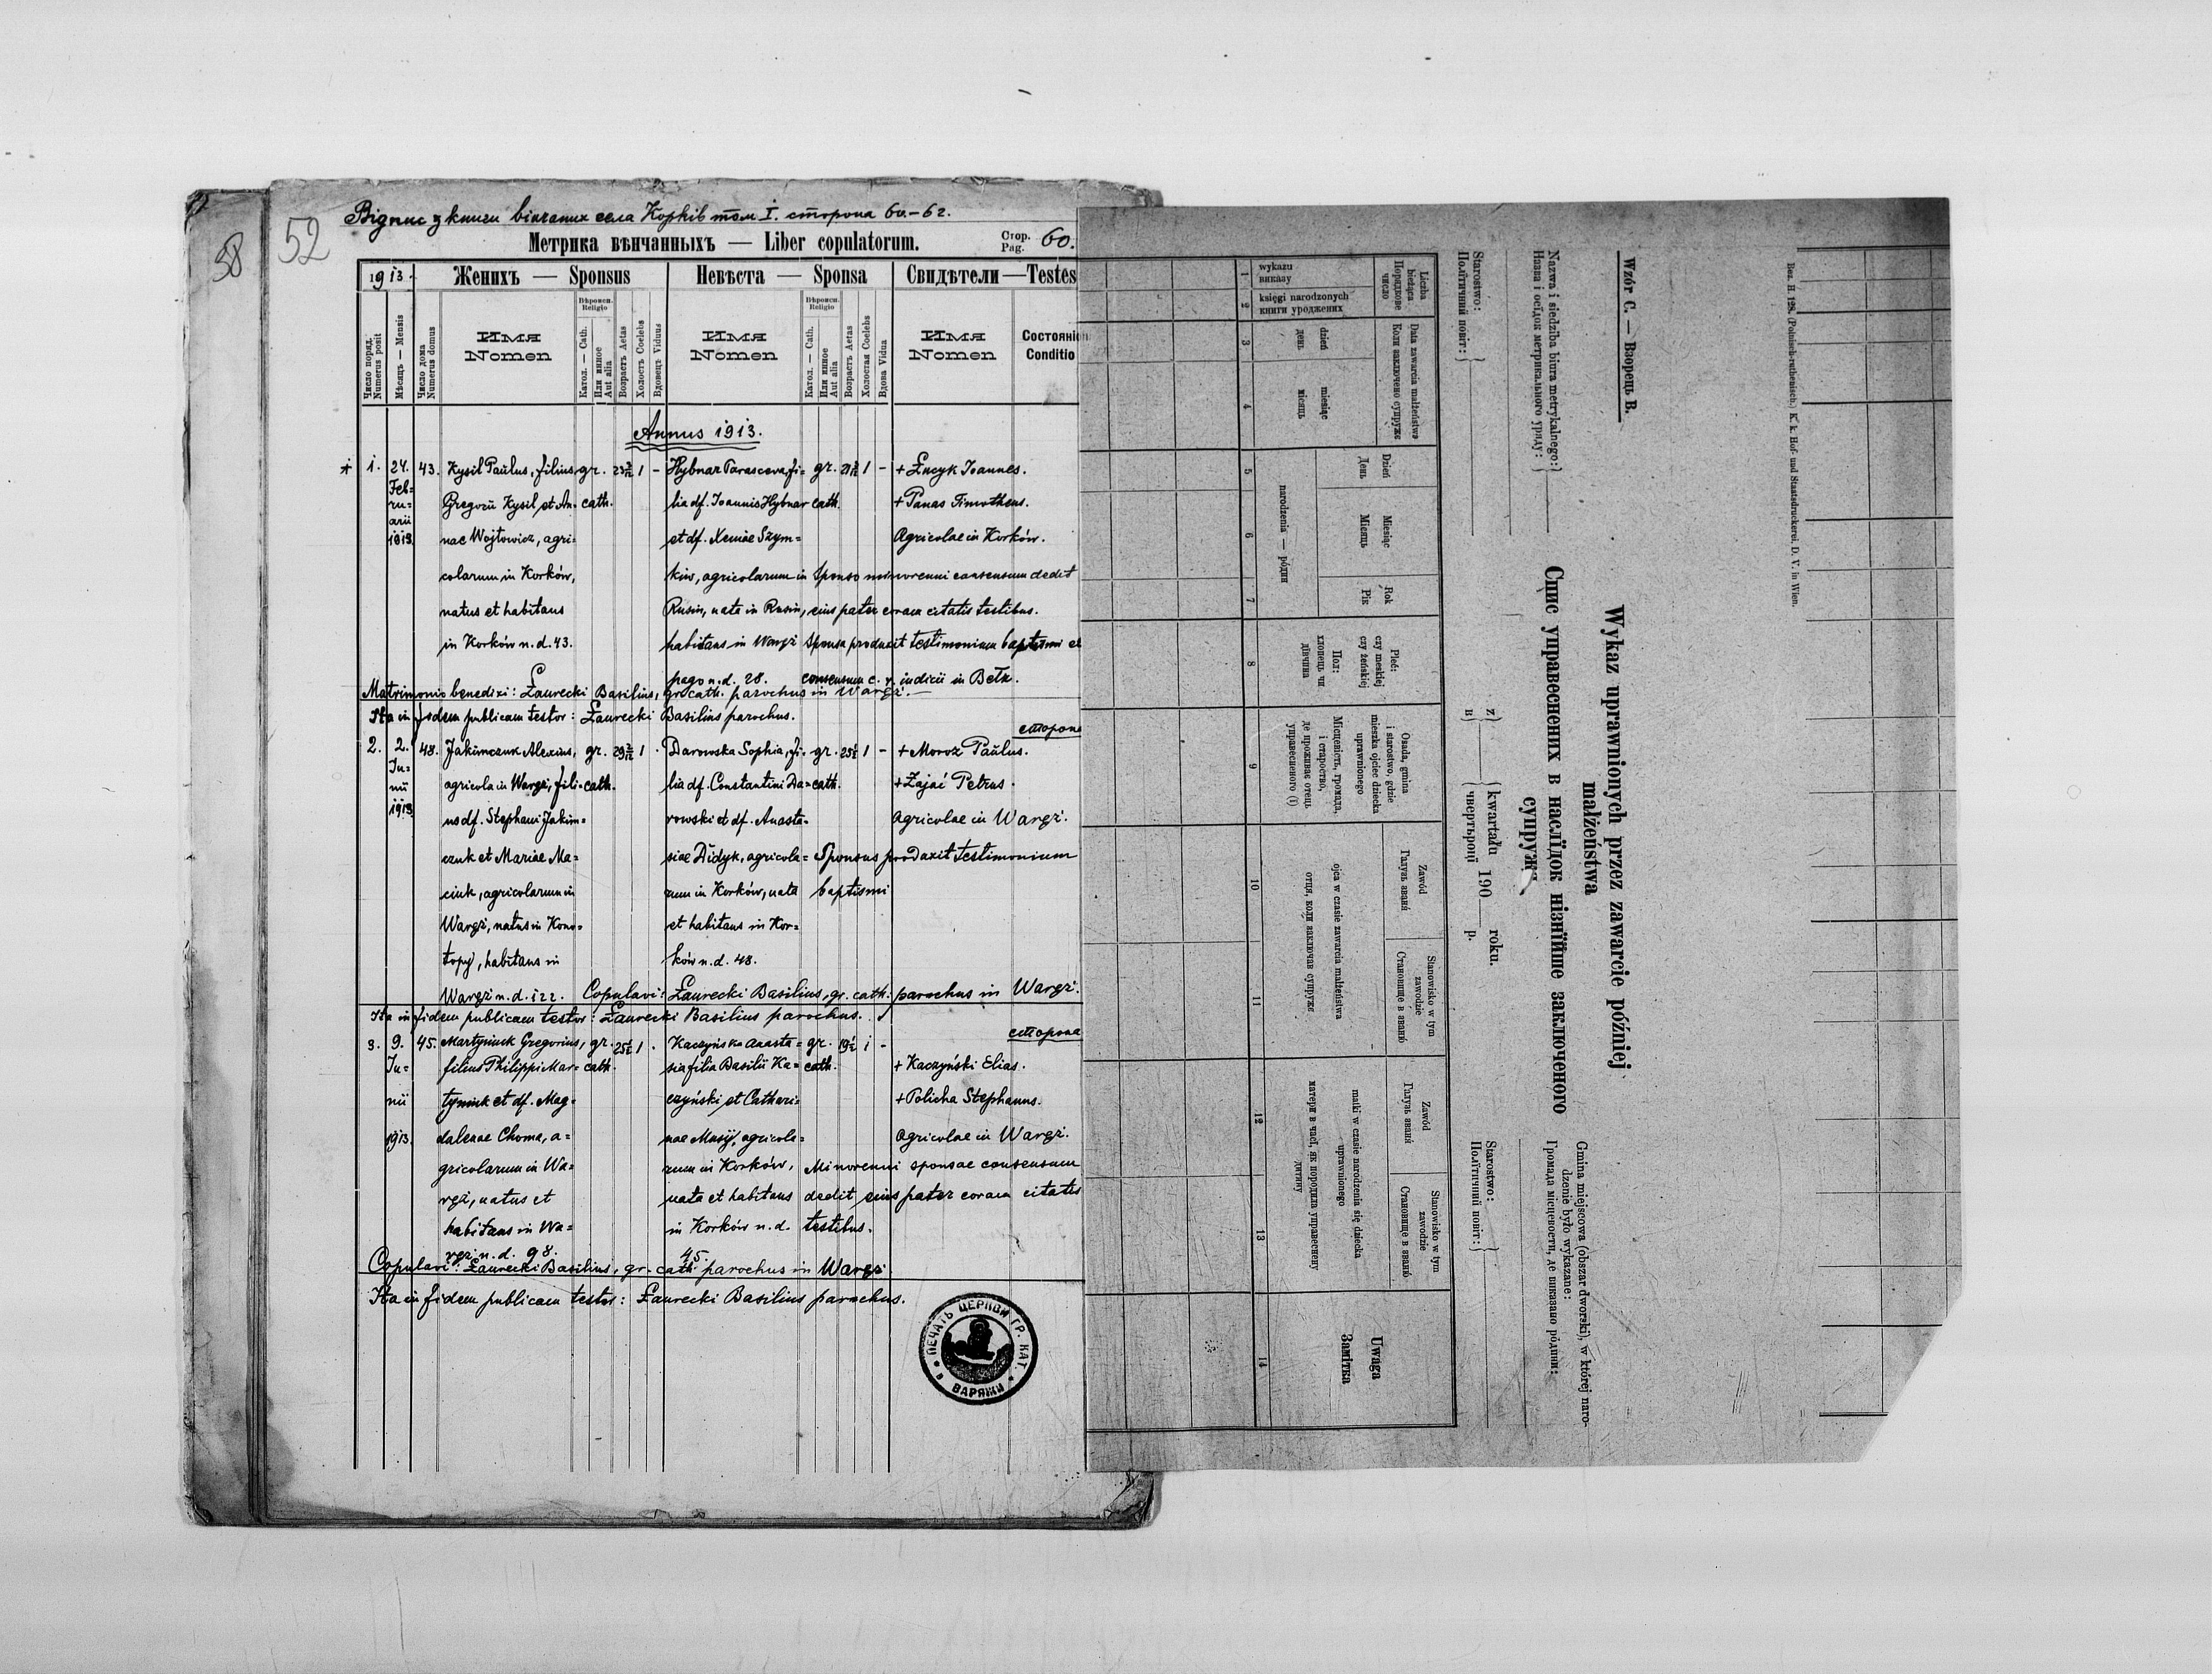 58
52
Відпис з книги вінчаних села Корків том I. сторона 60.-62.
Метрика вѣнчанныхъ — Liber copulatorum.
Стор. Pag. 60.
1913.
Женихъ — Sponsus
Невѣста — Sponsa
Свидѣтели — Testes
Число поряд. Numerus posit
Мѣсяцъ — Mensis
Число дома Numerus domus
Имя Nomen
Вѣроисп. Religio
Катол. — Cath.
Или инное Aut alia
Возрастъ Aetas
Холостъ Coelebs
Вдовецъ Vidus
Имя Nomen
Вѣроисп. Religio
Катол. — Cath.
Или инное Aut alia
Возрастъ Aetas
Холостая Coelebs
Вдова Vidua
Имя Nomen
Состояніе Conditio
Annus 1913.
1. 24. Februarii 1913. 43.
Kysil Paŭlus, filius
Gregorii Kysil et An-
nae Wojtowicz, agri-
colarum in Korków,
natus et habitans
in Korków n.d. 43.
gr. cath. 1 -
Hybnar Parasceva, fi-
lia df. Ioannis Hybnar
et df. Xeniae Szym-
kiw, agricolarum in
Rusin, nata in Rusin,
habitans in Wargi
pago n.d. 28.
gr. cath. 1 -
+ Łucyk Ioannes.
+ Panas Timotheus.
Agricolae in Korków.
Sponso minorenni consensum dedit
eius pater coram citatis testibus.
Sponsa produxit testimonium baptismi et
consensum c. r. iudicii in Bełz.
Matrimonio benedixi: Łaurecki Basilius, gr. cath. parochus in Wargi.
Ita in fidem publicam testor: Łaurecki Basilius parochus.
сторона
2. 2. Iunii 1913. 48.
Jakimczuk Alexius,
agricola in Wargi, fili-
us df. Stephani Jakim-
czuk et Mariae Ma-
ciuk, agricolarum in
Wargi, natus in Kono-
topy, habitans in
Wargi n.d. 122.
gr. cath. 1
Darowska Sophia, fi-
lia df. Constantini Da-
rowski et df. Anasta-
siae Didyk, agricola-
rum in Korków, nata
et habitans in Kor-
ków n.d. 48.
gr. cath. 1 -
+ Moroz Paŭlus.
+ Zając Petrus.
Agricolae in Wargi.
Sponsus produxit testimonium
baptismi
Copulavi: Łaurecki Basilius, gr. cath. parochus in Wargi.
Ita in fidem publicam testor: Łaurecki Basilius parochus.
сторона
3. 9. Iunii 1913. 45.
Martyniuk Gregorius,
filius Philippi Mar-
tyniuk et df. Mag-
dalenae Choma, a-
gricolarum in Wa-
rgi, natus et
habitans in Wa-
rgi n.d. 98.
gr. cath. 1
Kaczyńska Anasta-
sia filia Basilii Ka-
czyński et Cathari-
nae Musij, agricola-
rum in Korków,
nata et habitans
in Korków n.d.
45.
gr. cath. 1 -
+ Kaczyński Elias.
+ Policha Stephanus.
Agricolae in Wargi.
Minorenni sponsae consensum
dedit eius pater coram citatis
testibus.
Copulavi: Łaurecki Basilius, gr. cath. parochus in Wargi.
Ita in fidem publicam testor: Łaurecki Basilius parochus.
ПЕЧАТЬ ЦЕРКОВ ГР. КАТ. В ВАРЯЖИ
Bez. H. 128. (Polnisch-ruthenisch.) K. k. Hof- und Staatsdruckerei, D. V. in Wien.
Wzór C. — Взорець В.
Wykaz uprawnionych przez zawarcie później
małżeństwa
Спис управеснених в наслїдок нїзнїйше заключеного
супружа
Nazwa i siedziba biura metrykalnego:
Назва і осїдок метрикального уряду:
Starostwo:
Полїтичний повіт:
z kwartału 190 roku.
в чвертьроцї р.
Gmina miejscowa (obszar dworski), w której naro-
dzenie było wykazane:
Громада місцевости, де виказано родини:
Starostwo:
Полїтичний повіт:
Liczba bieżąca
Порядкове число
wykazu
виказу
księgi narodzonych
книги урожденних
Data zawarcia małżeństwa
Коли заключено супруже
dzień
день
miesiąc
місяць
Dzień
День
Miesiąc
Місяць
Rok
Рік
narodzenia — родин
Płeć:
czy męskiej
czy żeńskiej
Пол:
хлопець чи
дївчина
Osada, gmina
i starostwo, gdzie
mieszka ojciec dziecka
uprawnionego
Місцевість, громада,
і староство,
де проживає отець
управесненого (ї)
Zawód
Галузь званя
Stanowisko w tym
zawodzie
Становище в званю
ojca w czasie zawarcia małżeństwa
отця, коли заключав супруже
Zawód
Галузь званя
Stanowisko w tym
zawodzie
Становище в званю
matki w czasie narodzenia się dziecka
uprawnionego
матери в часї, як породила управеснену
дитину
Uwaga
Замітка
1 2 3 4 5 6 7 8 9 10 11 12 13 14